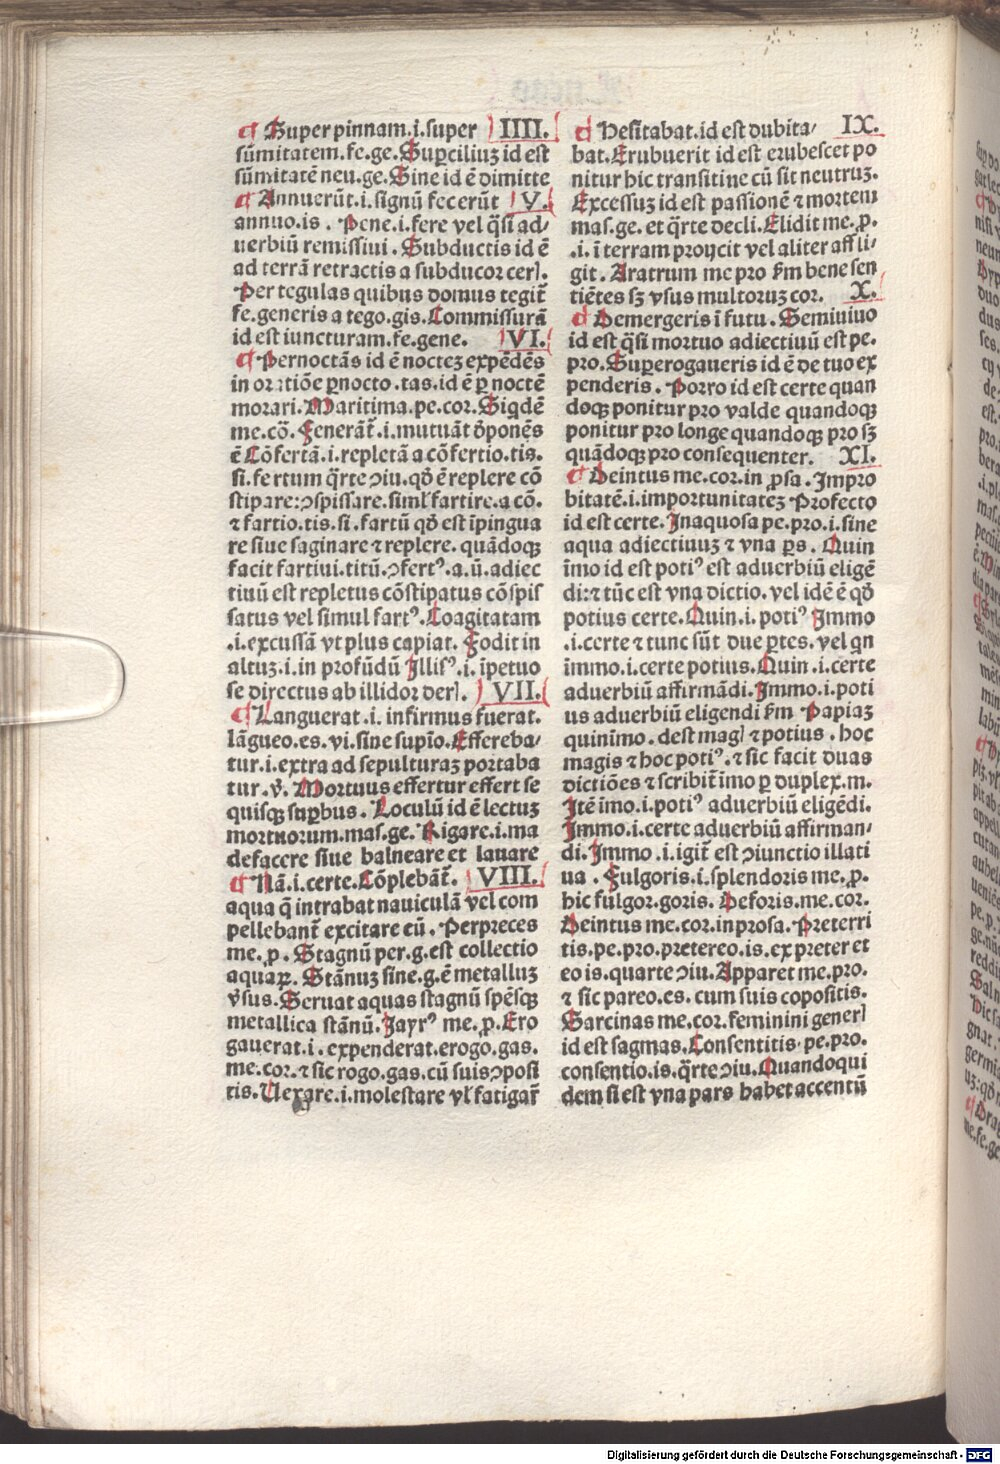 ¶ Super pinnam.i.super IIII.
sūmitatem.fe.ge.Suꝑciliuꝫ id est
sūmitatē neu.ge.Sine id ē dimitte
¶ Annuerūt.i.signū fecerūt V.
annuo.is. Pene.i.fere vel q̄si ad/
uerbiū remissiui. Subductis id ē
ad terrā retractis a subducor cerꝭ.
Per tegulas quibus domus tegit̄
fe.generis a tego.gis.Commissurā
id est iuncturam.fe.gene. VI.
¶ Pernoctās id ē nocteꝫ expēdēs
in oratiōe ꝑnocto.tas.id ē ꝑ noctē
morari.Maritima.pe.cor.Siqdē
me.cō.Fenerāt̄.i.mutuāt ōponēs
ē Cōfertā.i.repletā a cōfertio.tis.
si.fertum q̄rte ꝯiu.qđ ē replere cō
stipare:ꝯspissare.simł fartire.a cō.
⁊ fartio.tis.si.fartū qđ est īpingua
re siue saginare ⁊ replere.quādoqꝫ
facit fartiui.titū.ꝯfertꝰ.a.ū.adiec
tiuū est repletus cōstipatus cōspis
satus vel simul fartꝰ.Coagitatam
.i.excussā vt plus capiat.Fodit in
altuꝫ.i.in profūdū Illisꝰ.i.īpetuo
se directus ab illidor derꝭ. VII.
¶ Languerat.i.infirmus fuerat.
lāgueo.es.vi.sine supīo.Effereba/
tur.i.extra ad sepulturaꝫ portaba
tur.v̄.Mortuus effertur effert se
quisqꝫ suꝑbus.Loculū id ē lectuꝫ
mortuorum.mas.ge.Rigare.i.ma
defacere siue balneare et lauare
¶ Nā.i.certe.Cōplebāt̄. VIII.
aqua q̄ intrabat nauiculā vel com
pellebant̄ excitare eū.Perpreces
me.ꝑ.Stagnū per.g.est collectio
aquaꝝ.Stānuꝫ sine.g.ē metalluꝫ
v̄sus.Seruat aquas stagnū spēsqꝫ
metallica stānū.Jayrꝰ me.ꝑ.Ero
gauerat.i.expenderat.erogo.gas.
me.cor.⁊ sic rogo.gas.cū suis ꝯposi
tis.Vexare.i.molestare vł fatigar̄
¶ Hesitabat.id est dubita/ IX.
bat.Erubuerit id est erubescet po
nitur hic transitine cū sit neutruꝫ.
Excessuꝫ id est passionē ⁊ mortem
mas.ge.et q̄rte decli.Elidit me.ꝓ.
.i.ī terram proijcit vel aliter affli/
git.Aratrum me pro ẜm bene sen
tiētes sꝫ vsus multoruꝫ cor. X.
¶ Demergeris ī futu.Semiuiuo
id est q̄si mortuo adiectiuū est pe.
pro.Superogaueris id ē de tuo ex
penderis.Porro id est certe quan
doqꝫ ponitur pro valde quandoqꝫ
ponitur pro longe quandoqꝫ pro sꝫ
quādoqꝫ pro consequenter. XI.
¶ Deintus me.cor.in ꝓsa.Impro
bitatē.i.importunitateꝫ Profecto
id est certe.Inaquosa pe.pro.i.sine
aqua adiectiuuꝫ ⁊ vna ꝑs.Quin
īmo id est potiꝰ est aduerbiū eligē
di:⁊ tūc est vna dictio.vel idē ē qđ
potius certe.Quin.i.potiꝰ Immo
.i.certe ⁊ tunc sūt due ꝑtes.vel qn
immo.i.certe potius.Quin.i.certe
aduerbiū affirmādi.Immo.i.poti
us aduerbiū eligendi ẜm Papiaꝫ
quinimo.dest magꝭ ⁊ potius.hoc
magis ⁊ hoc potiꝰ.⁊ sic facit duas
dictiōes ⁊ scribit̄ imo ꝑ duplex.m.
Itē imo.i.potiꝰ aduerbiū eligēdi.
Immo.i.certe aduerbiū affirman/
di.Immo.i.igit̄ est ꝯiunctio illati
ua.Fulgoris.i.splendoris me.ꝓ.
hic fulgor.goris.Deforis.me.cor.
Deintus me.cor.in prosa.Preterri
tis.pe.pro.pretereo.is.ex preter et
eo is.quarte ꝯiu.Apparet me.pro.
⁊ sic pareo.es.cum suis copositis.
Sarcinas me.cor.feminini generꝭ
id est sagmas.Consentitis.pe.pro.
consentio.is.q̄rte ꝯiu.Quandoqui
dem si est vna pars habet accentū
Digitalisierung gefördert durch die Deutsche Forschungsgemeinschaft - DFG